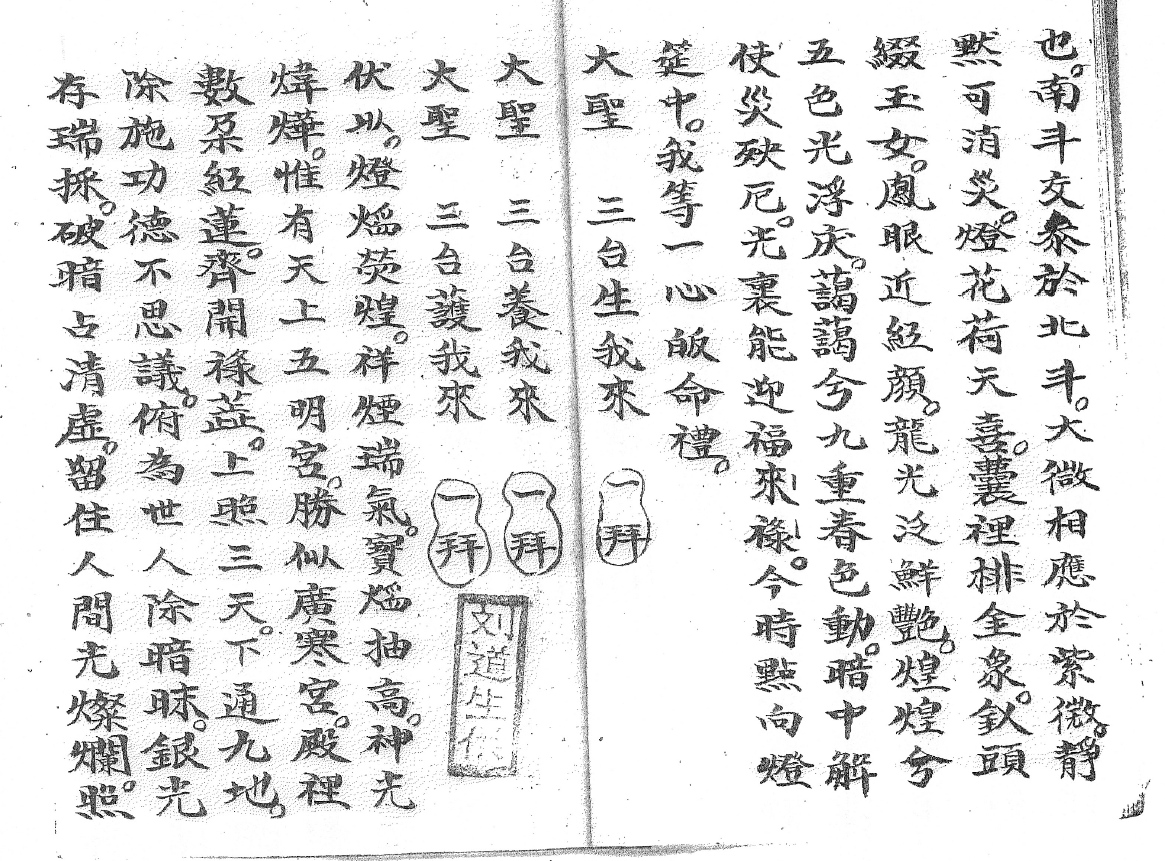 也。南斗文叅於北斗。大微相應於紫微。靜
默可消災。燈花荷天喜。囊裡排金象。釵頭
綴玉女。鳳眼近紅顏。龍光泛鮮艷。煌煌兮
五色光浮庆。藹藹兮九重春色動。暗中解
使災殃厄。光裏能迎福來祿。今時點向燈
筵中。我等一心皈命禮。
大聖 三台生我來 一拜
大聖 三台養我來 一拜
大聖 三台護我來 一拜
刘道生
伏以。燈熖熒煌。祥煙瑞氣。寶熖抽高。神光
煒燁。惟有天上五明宮。勝似廣寒宮。殿裡
數朶紅蓮。齊開祿蕋。上照三天。下通九地。
除施功德不思議。俯為世人除暗昧。銀光
存瑞採。破暗占清虛。留住人間光燦爛。照